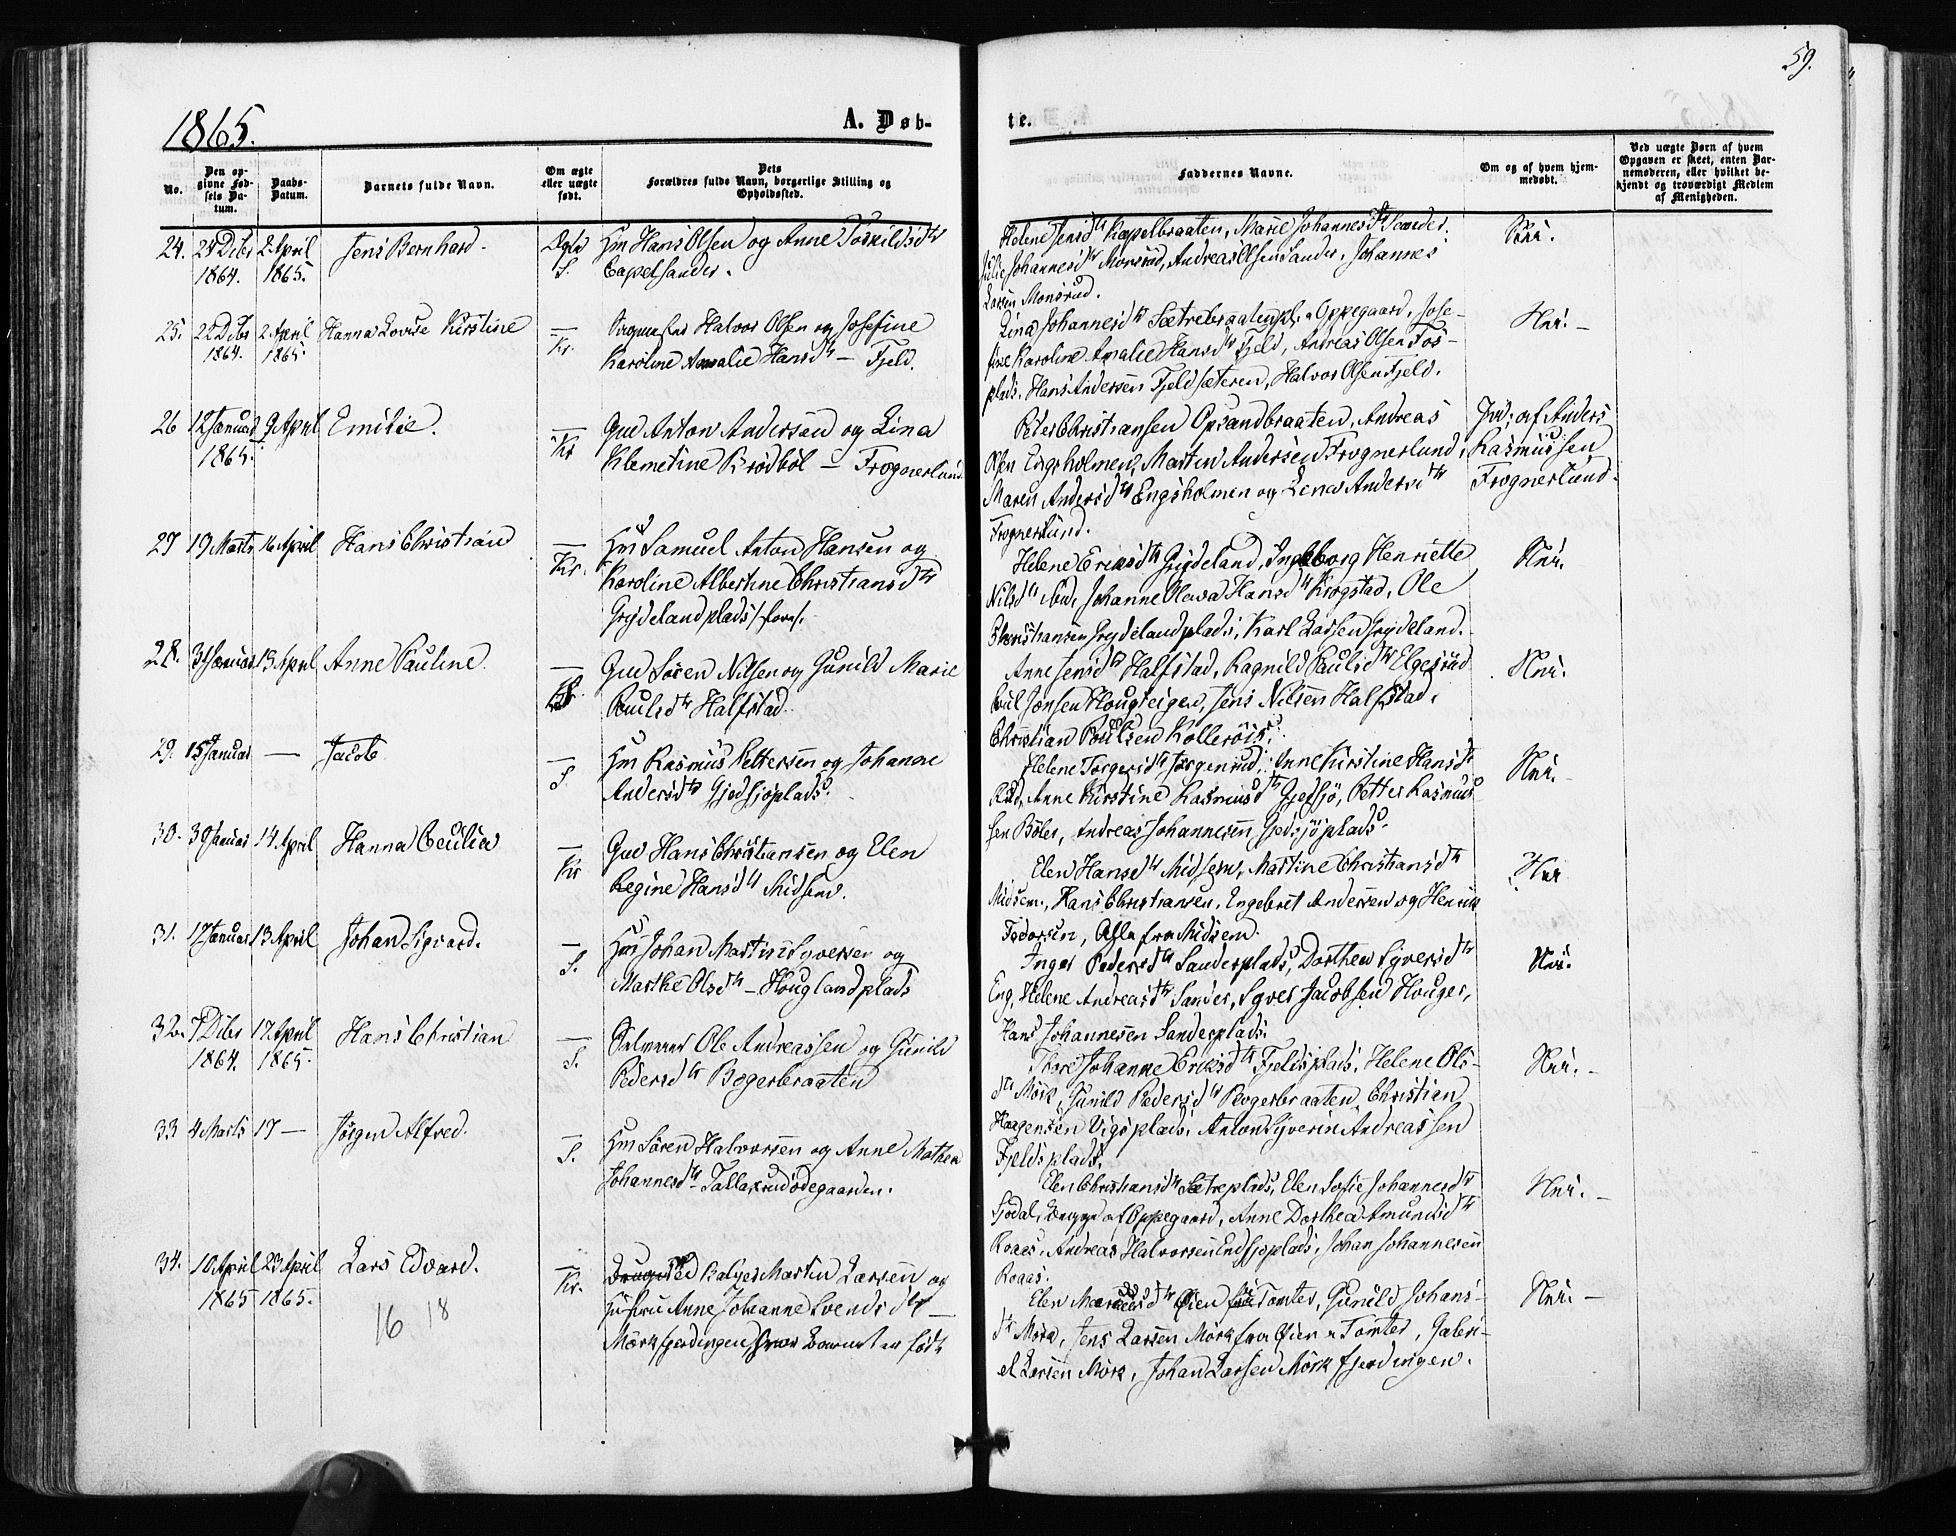 59.
1865.
A. Døb-
te.
No.
Den op-
givne Fød-
sels Da-
tum.
Daabs-
Datum.
Barnets fulde Navn.
Om ægte
eller uægte
født.
Dets
Forældres fulde Navn, borgerlige Stilling og
Opholdssted.
Faddernes Navne.
Om og af hvem hjem-
medøbt.
Ved uægte Børn af hvem
Opgaven er skeet, enten Bar-
nemoderen, eller hvilket be-
kjendt og troværdigt Medlem
af Menigheden.
24.
Dcbr
1864.
2 April
1865.
Jens Bernhard.
S.
Hm Hans Olsen og Anne Torkildsdtr
Capelsander.
Helene Jensdtr Kapelbraaten, Marie Johannesdtr Sander.
Julie Johannesdtr Monsrud, Andreas Olsen Sander, Johannes
Larsen Monsrud.
25.
22 Dcbr
1864.
2 April
1865.
Hanna Lovise Kirstine
Kr.
Halvor Olsen og Josefine
Karoline Amalie Hansdtr — Fjeld.
Lina Johannesdtr Sætrebraatenpl. Oppegaard, Jose-
fine Karoline Amalie Hansdtr Fjeld, Andreas Olsen Fos-
plads, Hans Andersen Fjeldsæteren, Halvor Olsen Fjeld.
26
12 Januar
1865.
9 April
Emilie.
Kr
Gm Anton Andersen og Lina
Klemetine Brødbøl — Frognerlund
Peter Christiansen Opsandbraaten, Andreas
Olsen Engsholmen, Martin Andersen Frognerlund,
Maren Andersdtr Engsholmen og Lena Andersdtr
Frognerlund.
af Anders
Rasmussen
Frognerlund.
27
19 Marts
16 April
Hans Christian
Kr.
Hm Samuel Anton Hansen og
Karoline Albertine Christiansdtr
Grydelandplads
Helene Eriksdtr Grydeland, Ingeborg Henriette
Nilsdtr ibd, Johanne Olava Hansdtr Krogstad, Ole
Christiansen Grydelandplads, Karl Larsen Grydeland.
28.
Januar
13 April
Anne Pauline.
Gm Søren Nilsen og Gunild Marie
Paulsdtr Halfstad.
Anne Jensdtr Halfstad, Ragnild Paulsdtr Elgesrud
Poul Jensen Hougteigen, Jens Nilsen Halfstad,
Christian Poulsen Kollerøis,
29.
15 Januar
—
Jacob
S.
Hm Rasmus Pettersen og Johanne
Andersdtr Gjedsjøplads.
Helene Torgersdtr Jørgenrud, Anne Kirstine Hansdtr
Rud, Anne Kirstine Rasmusdtr Gjedsjø, Petter Rasmus
sen Bøler, Andreas Johannesen Gjedsjøplads.
30.
30 Januar
14 April
Hanna Cecilia
Kr
Gm Hans Christiansen og Elen
Regine Hansdtr Midsem.
Elen Hansdtr Midsem, Martine Christiansdtr
Midsem, Hans Christiansen, Engebret Andersen og Henrik
Todorsen, Alle fra Midsem.
31.
17 Januar
13 April
Johan Sigvard.
S.
Hm Johan Martin Syversen og
Marthe Olsdtr — Houglandplads
Inger Pedersdtr Sandersplads, Dorthea Syversdtr
Eng, Helene Andreasdtr Sander, Syver Jacobsen Houger,
Hans Johannesen Sanderplads.
32.
7 Dcbr
1864.
17 April
1865.
Hans Christian
S.
Selveier Ole Andreassen og Gunild
Pedersdtr Bogerbraaten
Thore Johanne Eriksdtr Fjeldsplads, Helene Ols-
dtr Mørk, Gunild Pedersdtr Bogerbraaten, Christian
Haagensen Vigsplads, Anton Syverin Andreassen
Fjeldsplads.
33
4 Marts
17 —
Jørgen Alfred.
S.
Hm Søren Halvorsen og Anne Mathea
Johannesdtr — Tallaxrudødegaarden.
Elen Christiansdtr Sætreplads, Elen Sofie Johannesdtr
Sjødal, af Oppegaard, Anne Dorthea Amundsdtr
Roaas, Andreas Halvorsen Endsjøplads, Johan Johannesen
Roaas.
34.
10 April
1865
23 April
1865.
Lars Edvard.
Kr.
Martin Larsen og
Hustru Anne Johanne Svendsdtr —
Mørk fjerdingen hvor Barnet er født
Elen Øien Tomter, Gunild Johans-
dtr Mørk, Jens Larsen Mørk fra Øien Tomter, Gabri-
el Larsen Mørk, Johan Larsen Mørk fjerdingen.
16 18